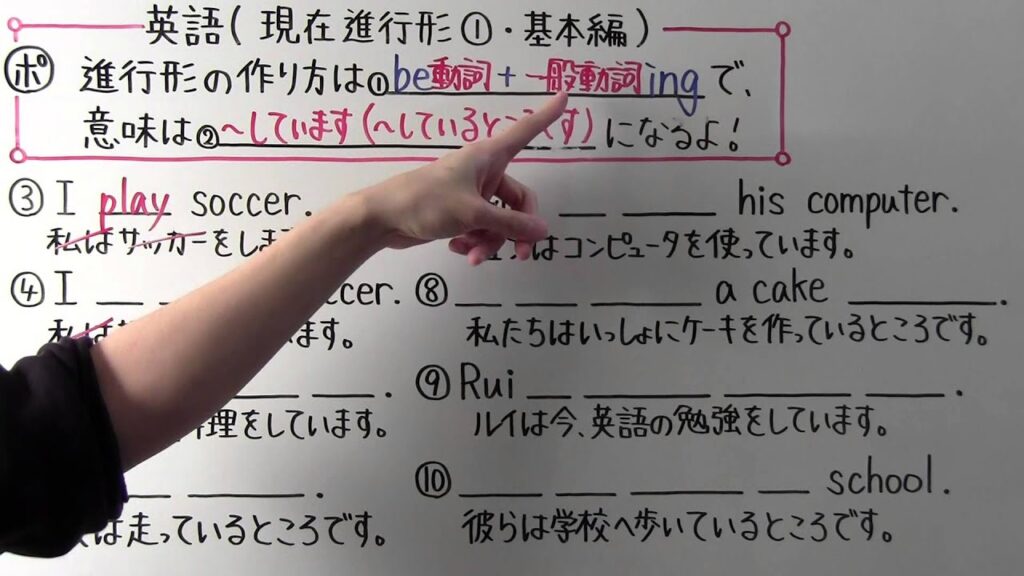 英語(現在進行形①・基本編)
ポ 進行形の作り方は①be動詞+一般動詞ingで、
意味は②~しています(~しているところです)になるよ!
③I play soccer.
私はサッカーをしま
④I __ ccer.
私は ます。
__ __ .
理をしています。
__ __ .
は走っているところです。
__ __ his computer.
はコンピュータを使っています。
⑧__ __ __ a cake __.
私たちはいっしょにケーキを作っているところです。
⑨Rui __ __ __ __.
ルイは今、英語の勉強をしています。
⑩__ __ __ __ school.
彼らは学校へ歩いているところです。